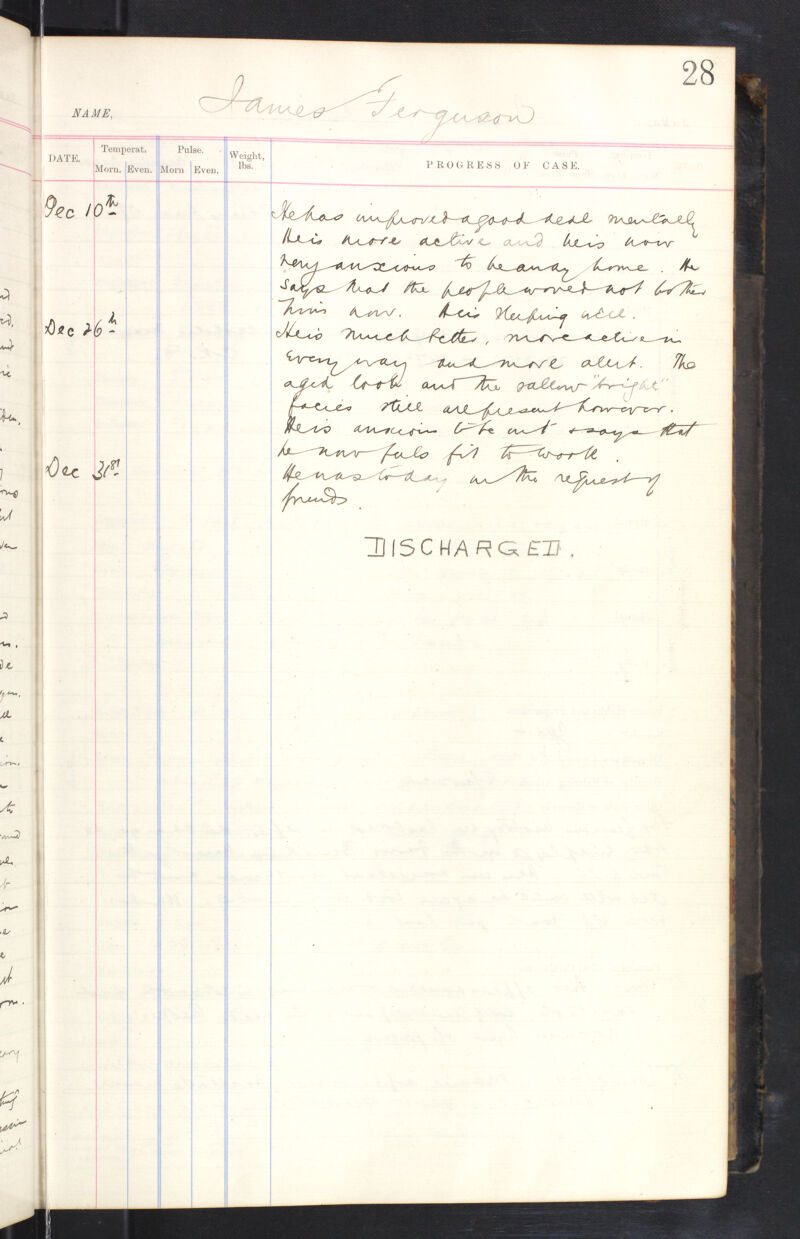 28
NAME, James Ferguson
DATE. Temperat. Pulse. Weight, lbs. PROGRESS OF CASE.
Morn. Even. Morn Even.
Dec 10th He has improved a good deal mentally
He is more active and he is now
very anxious to be away home. He
says that the people wd not bother
him now. He is sleeping well.
Dec 26th He is much better, more active in
every way and more alert. The
aged look and the sallow "bright"
facies still are present however.
He is anxious to be out & says that
he now feels fit to work.
Dec 31st He was today at the request of
friends.
DISCHARGED.